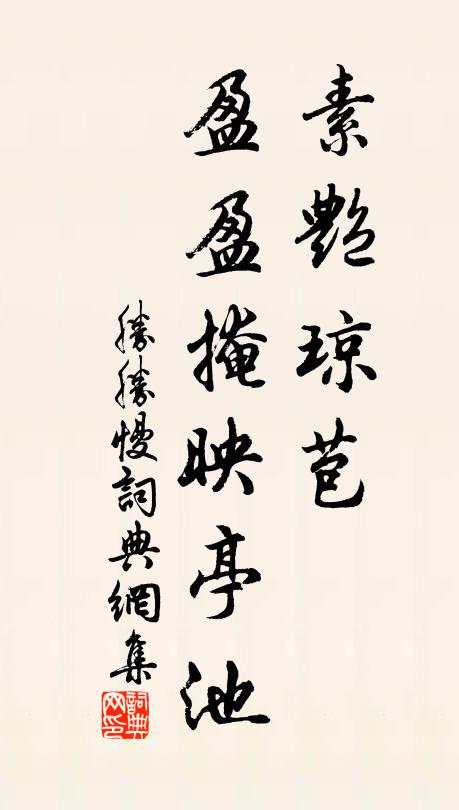 素艷琼苞
盈盈掩映亭池
勝勝慢詞典網集
詞典
网印